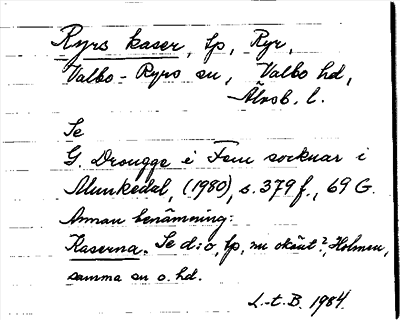 Ryrs kaser, lp, Ryr,
Valbo-Ryrs sn, Valbo hd,
Älvsb. l.
Se
G. Drougge i Fem socknar i
Munkedal, (1980), s. 379 f., 69 G.
Annan benämning:
Kaserna. Se d:o, lp, nu okänt?, Holmen,
samma sn o. hd.
L-t. B. 1984.